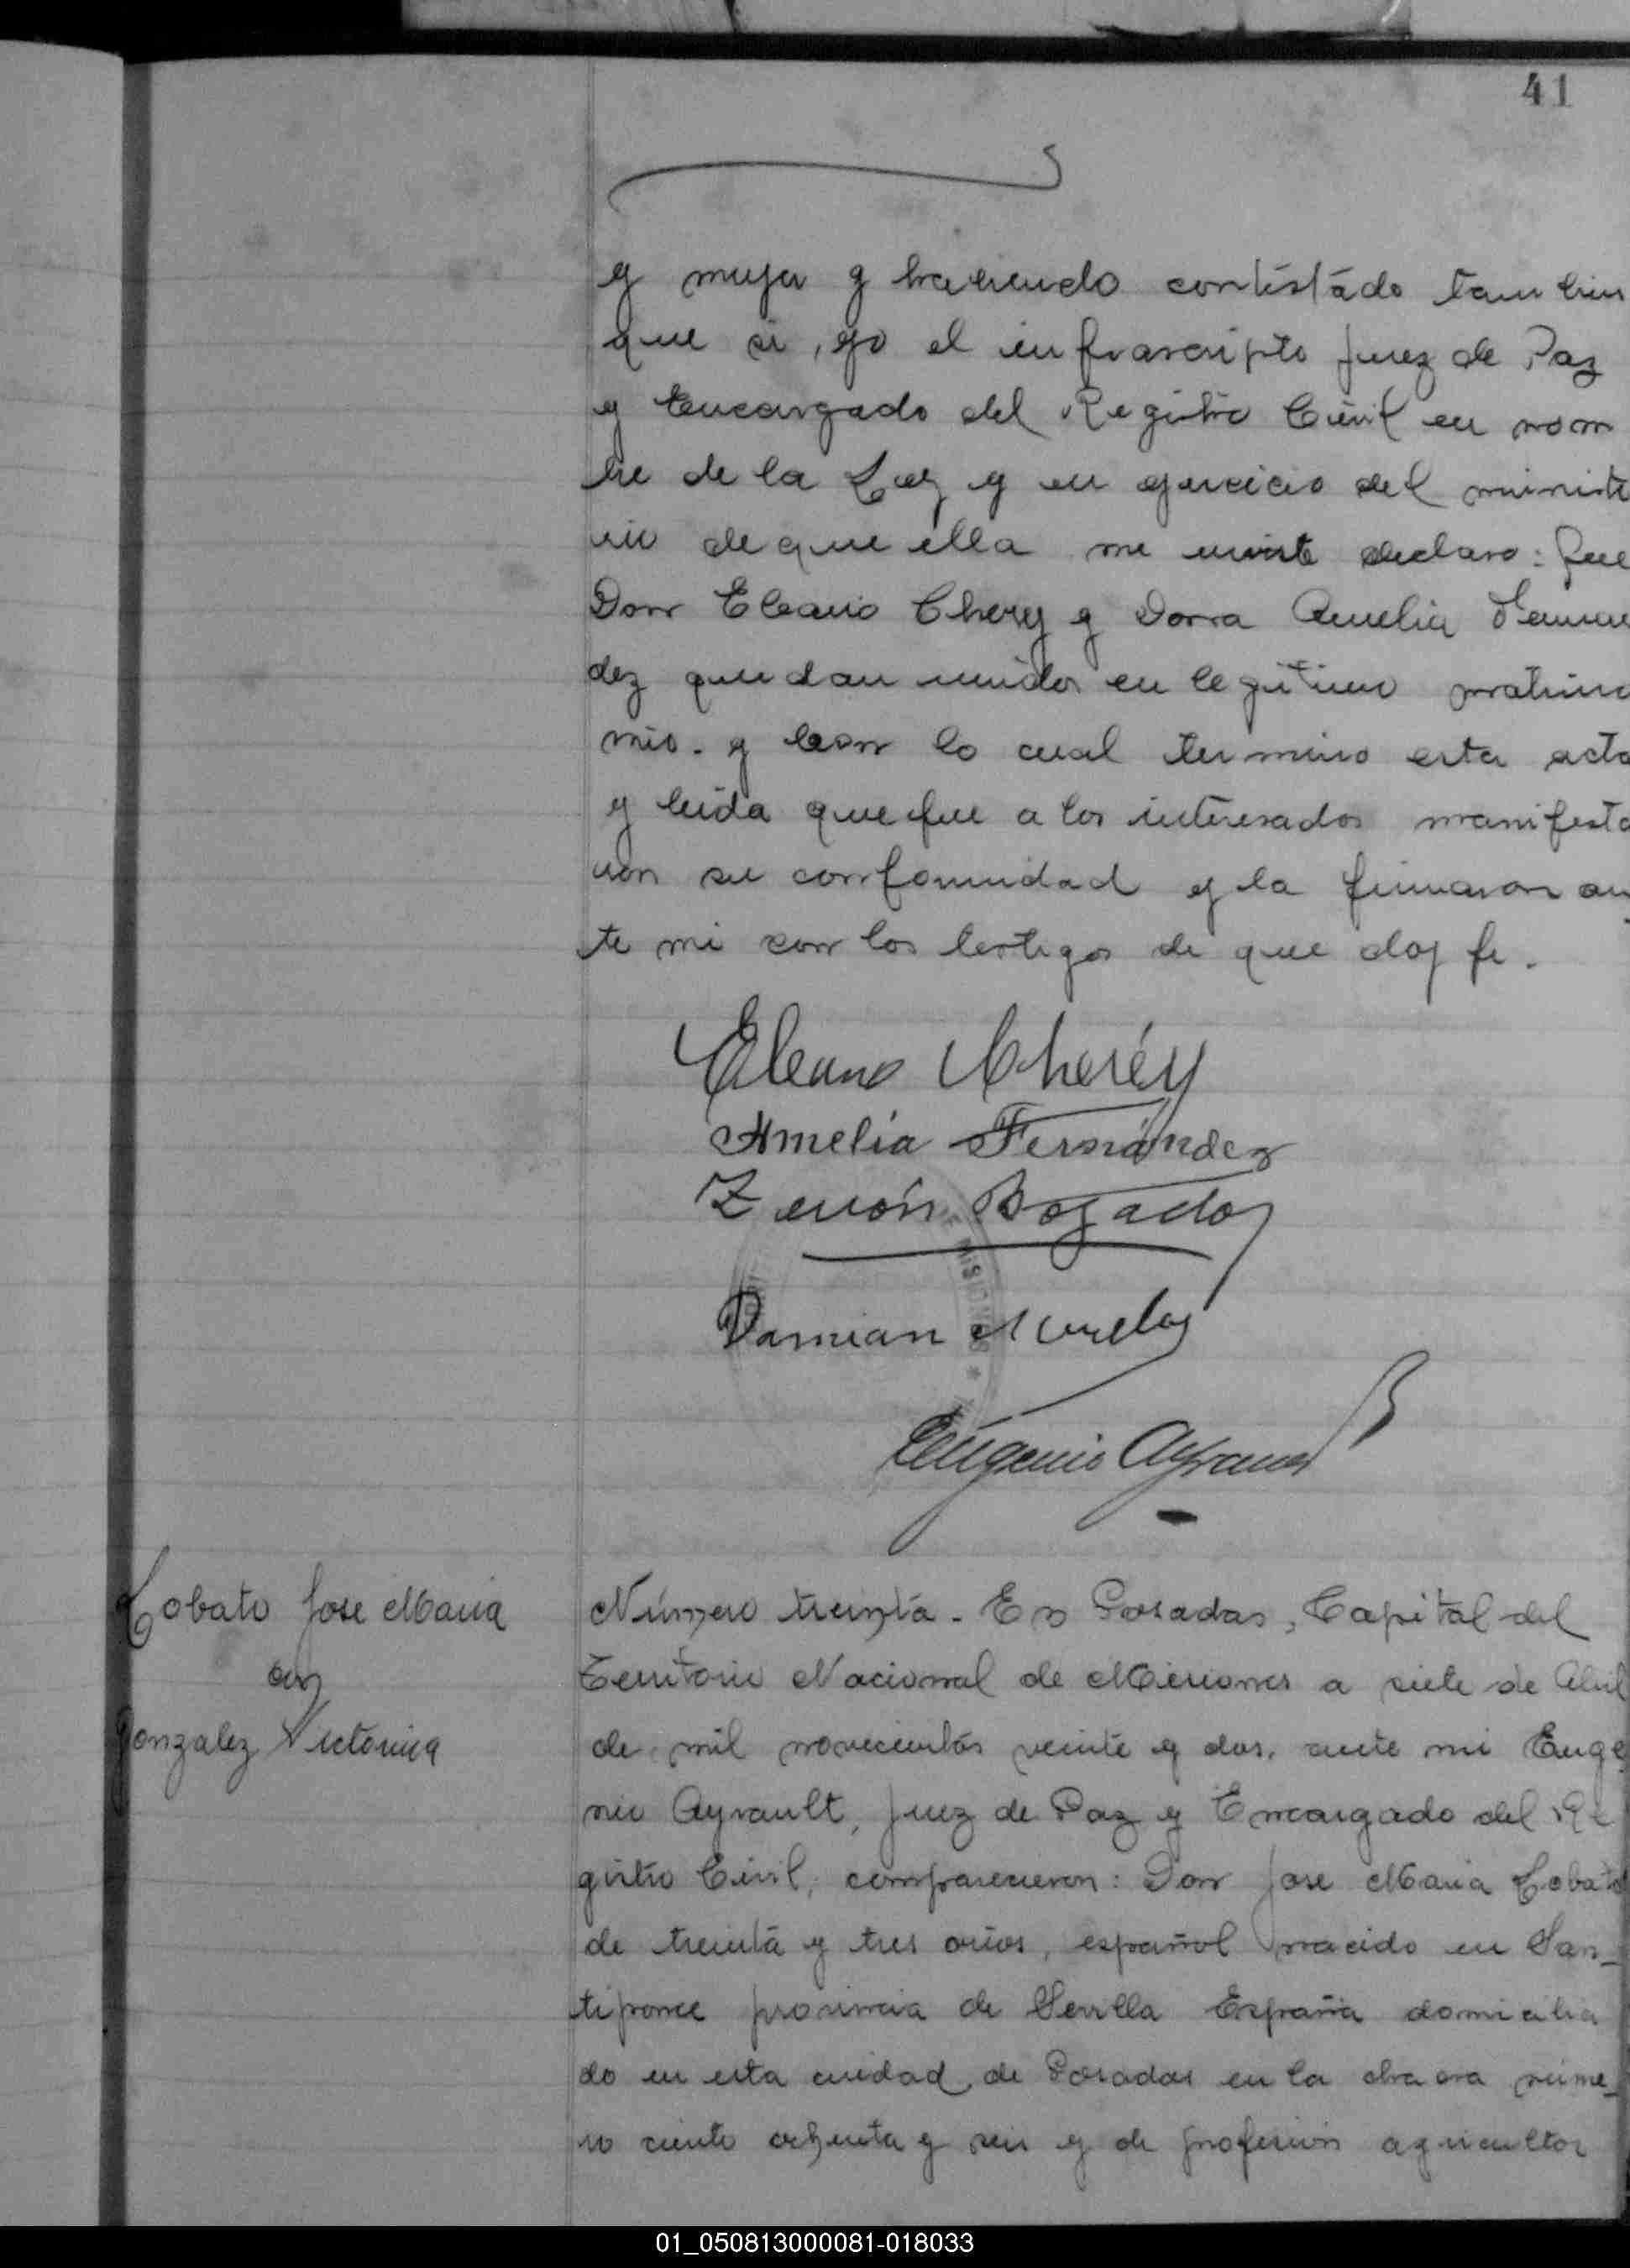 41
y mujer y haciendo contestado tambien
que si, yo el infrascripto Juez de Paz
y Encargado del Registro Civil en nom
bre de la Ley y en ejercicio del ministe
rio de que ella me inviste declaro: que
Don Eleario Cherey y Dona Amelia Fernan
dez quedan unidos en legitimo matrimo
nio. y con lo cual termino esta acta
y leida que fue a los interesados manifesta
ron su conformidad y la firmaron an
te mi con los testigos de que doy fe.
Cheréy
Amelia Fernández
Zenón Bogado
MISIONES
Damian
Eugenio Ayrault
Lobato Jose Maria
con
Gonzalez Victorina
Número treinta. En Posadas, Capital del
Territorio Nacional de Misiones a siete de Abril
de mil novecientos veinte y dos, ante mi Euge
nio Ayrault, Juez de Paz y Encargado del Re
gistro Civil, comparecieron: Don Jose Maria Lobato
de treinta y tres años, español nacido en San_
tiponce provincia de Sevilla España domicilia
do en esta ciudad de Posadas en la chacra núme_
ro ciento ochenta y seis y de profesion agricultor
01_050813000081-018033